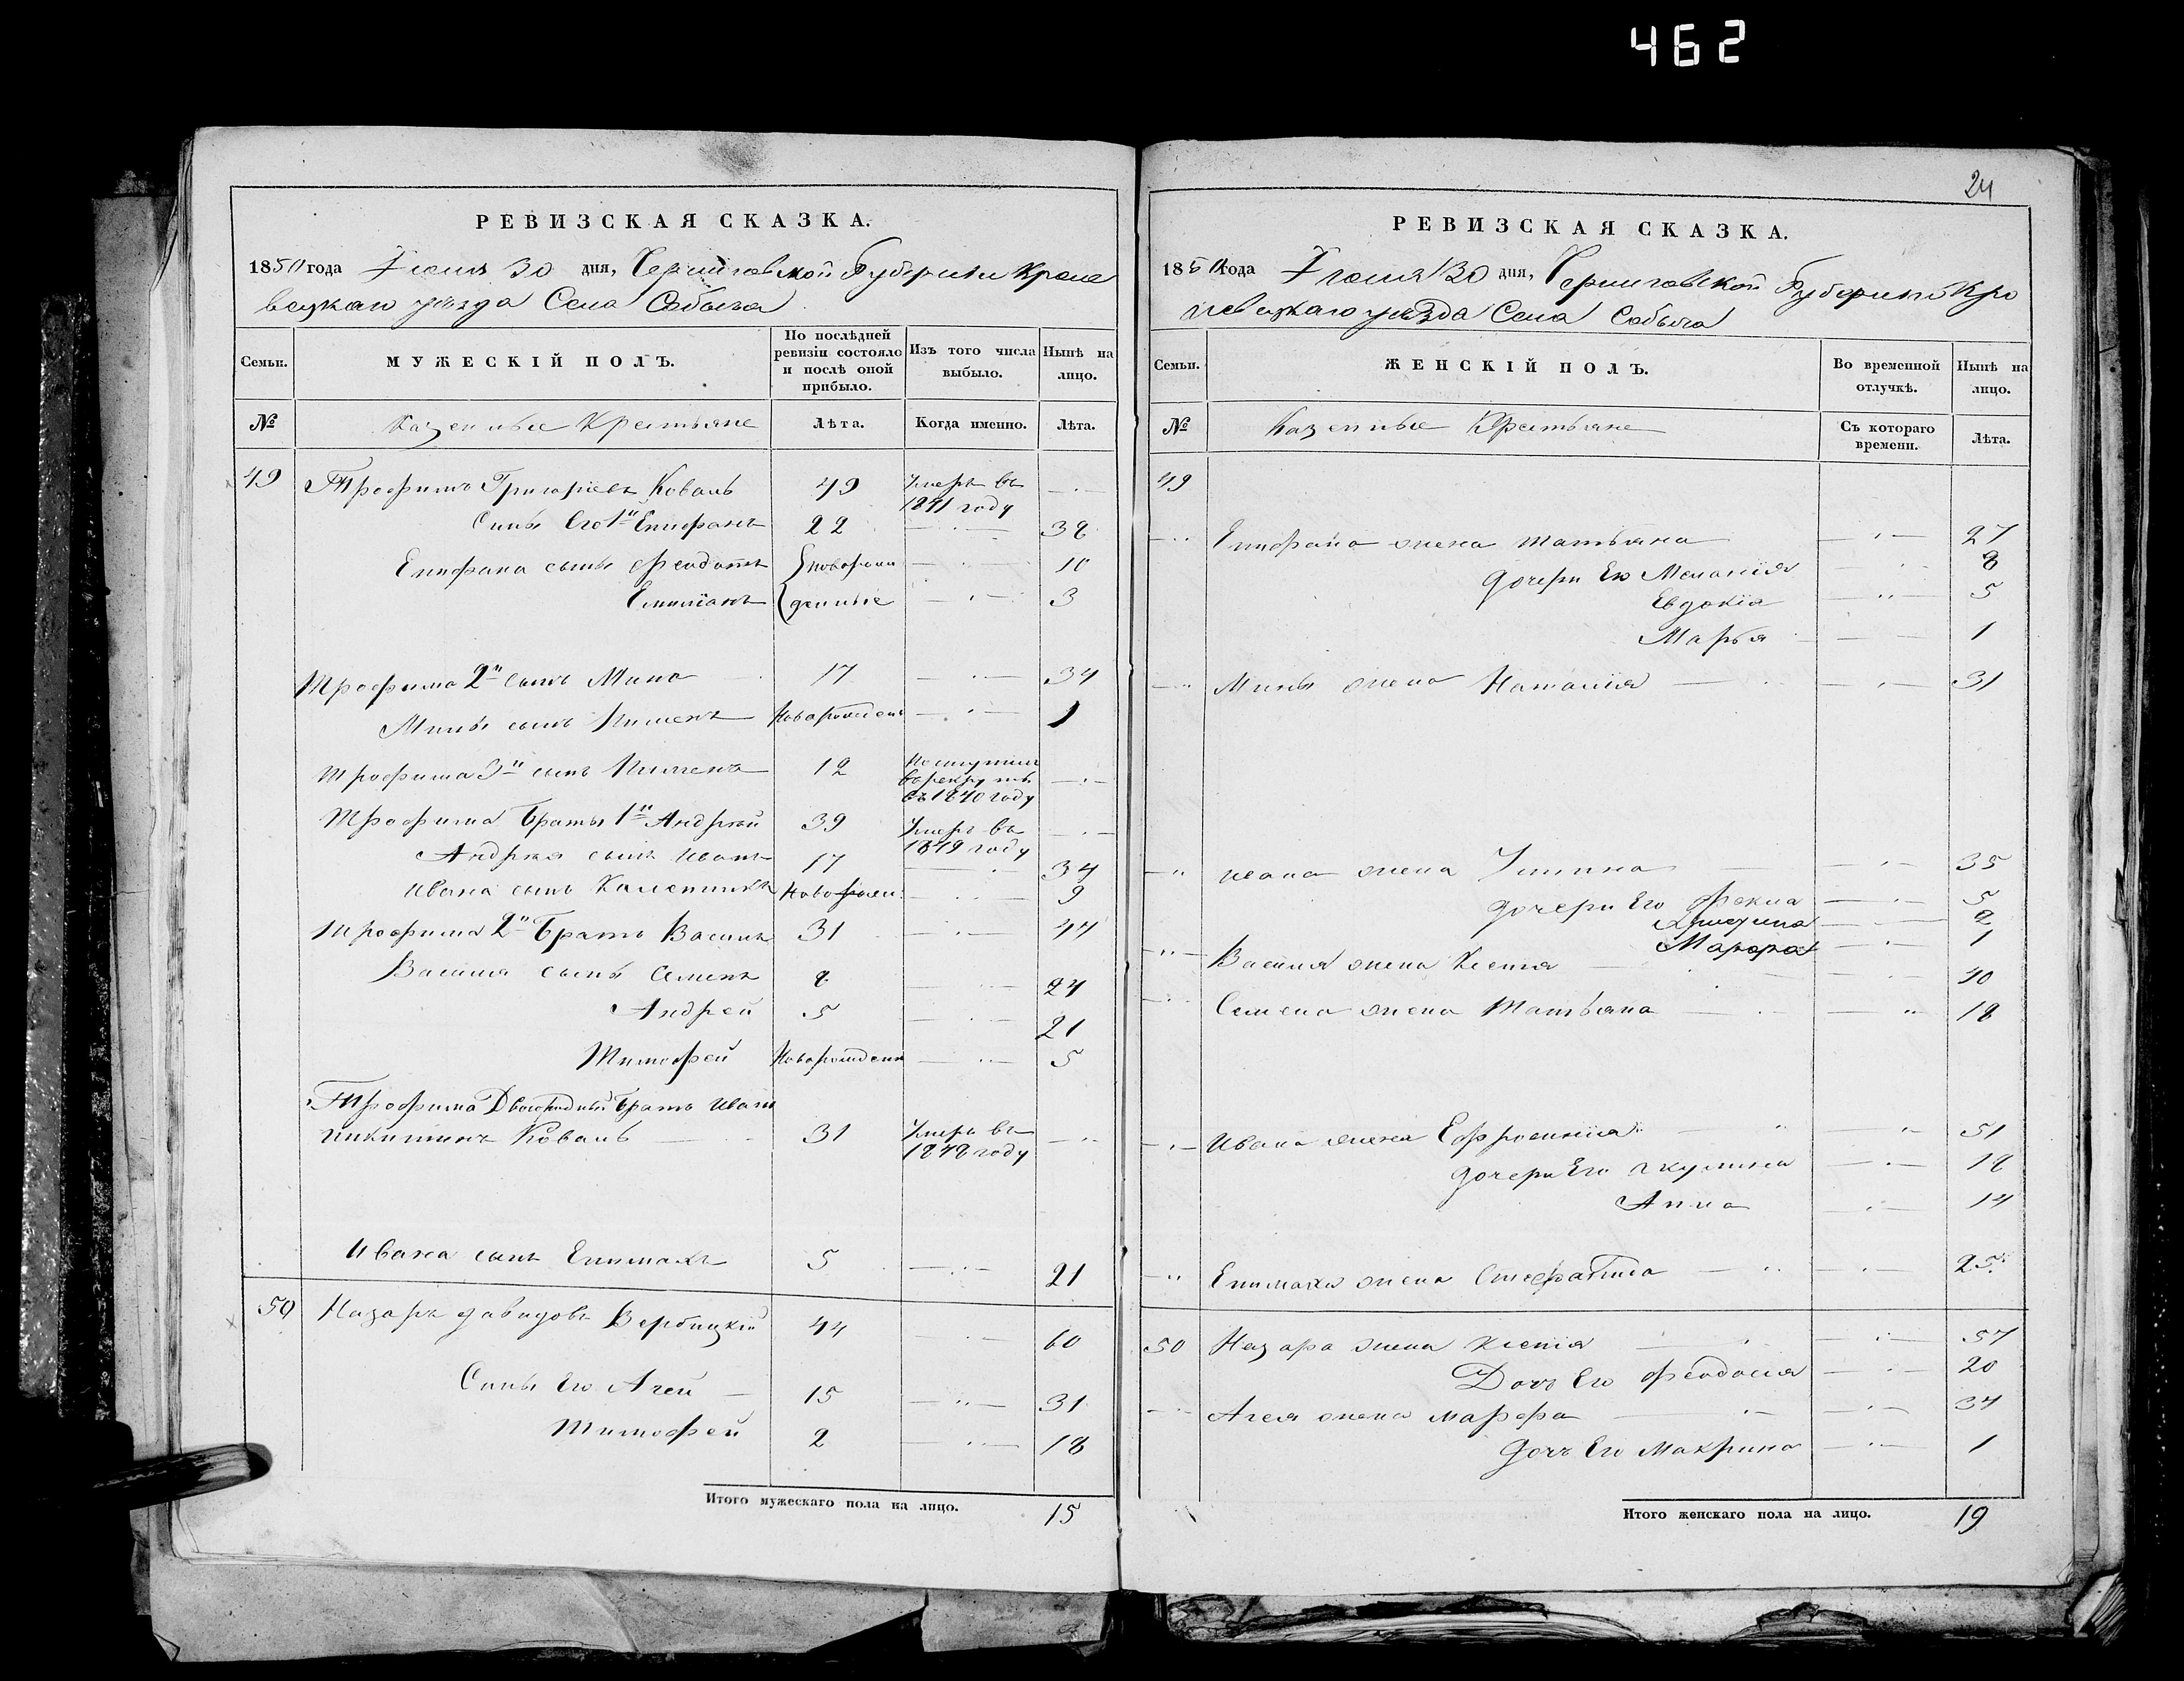 462
РЕВИЗСКАЯ СКАЗКА.
1850 года Іюня 30 дня, Черниговской Губерніи Кроле
вецкаго уѣзда Села Собыча
Семьи.
МУЖЕСКІЙ ПОЛЪ.
По послѣдней ревизіи состояло и послѣ оной прибыло.
Изъ того числа выбыло.
Нынѣ на лицо.
№
Казенные Крестьяне
Лѣта.
Когда именно.
Лѣта.
49 Трофимъ Григоріевъ Коваль 49 Умеръ въ 1841 году —
Сины Его 1й Епифанъ 22 — 38
Епифана сыны Феодотъ новорож 10
Емиліанъ денные — 3
Трофима 2й сынъ Мина 17 — 34
Мины сынъ Пименъ Новорожден — 1
Трофима 3й сынъ Пименъ 12 Поступил в рекруты въ 1840 году —
Трофима Браты 1й Андрей 39 Умеръ въ 1849 году —
Андрея сынъ Иванъ 17 — 34
Ивана сынъ Калениикъ Новорожден — 9
Трофима 2й Братъ Василь 31 — 47
Василя сыны Семенъ 8 — 24
Андрей 5 — 21
Тимофей Новорожден — 5
Трофима Двоюродный Братъ Иванъ
Никитинъ Коваль 31 Умеръ въ 1848 году —
Ивана сынъ Епимахъ 5 — 21
50 Назаръ Давидовъ Вербицкій 44 — 60
Сины Его Агей — 15 — 31
Тимофей 2 — 18
Итого мужескаго пола на лицо. 15
24
РЕВИЗСКАЯ СКАЗКА.
1850 года Іюня 30 дня, Черниговской Губерніи Кро
левецкаго уѣзда Села Собыча
Семьи.
ЖЕНСКІЙ ПОЛЪ.
Во временной отлучкѣ.
Нынѣ на лицо.
№
Казенные Крестьяне
Съ котораго времени.
Лѣта.
49
Епифана жена Татьяна — 27
Дочери Его Меланія — 8
Евдокія — 5
Марья — 1
Мины жена Наталія — 31
Ивана жена Улиина — 35
Дочери Его Фекла — 5
Христина — 2
Марфа — 1
Василя жена Ксенія — 40
Семена жена Татьяна — 18
Ивана жена Ефросинія — 51
Дочери Его Акулина — 18
Анна — 14
Епимаха жена Стефанида — 25
50 Назара жена Ксенія — 57
Дочъ Его Феодосія — 20
Агея жена Марфа — 34
Дочъ Его Макрина — 1
Итого женскаго пола на лицо. 19